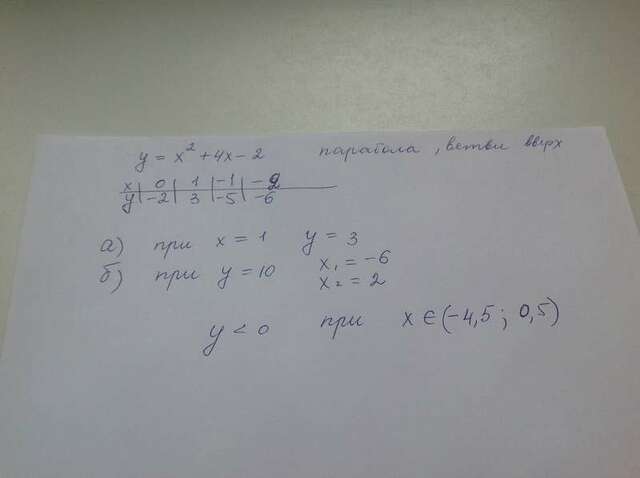 y = x² + 4x - 2 парабола, ветви вверх
x | 0 | 1 | -1 | -2
y | -2 | 3 | -5 | -6
а) при x = 1 y = 3
б) при y = 10 x₁ = -6
x₂ = 2
y < 0 при x ∈ (-4,5; 0,5)